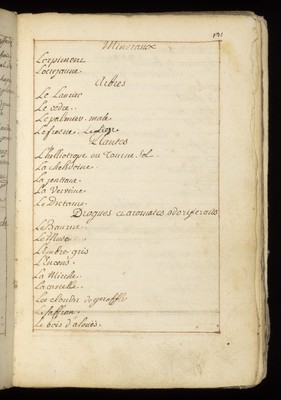 Mineraux
L'orpiment
L'ocre jaune
Arbres
Le Laurier
Le cedre
Le palmier male
Le fresne. Le
Plantes
L'helliotrope ou tourne sol
La chelidoine
La gentiane
La Verveine
Le Dictame
Drogues et aromates adoriferants
Le Baume
Le Musc
L'ambre gris
L'Encens
La Mirrhe
La canelle
Les cloudz de geroffle
Le saffran
Le bois d'aloües